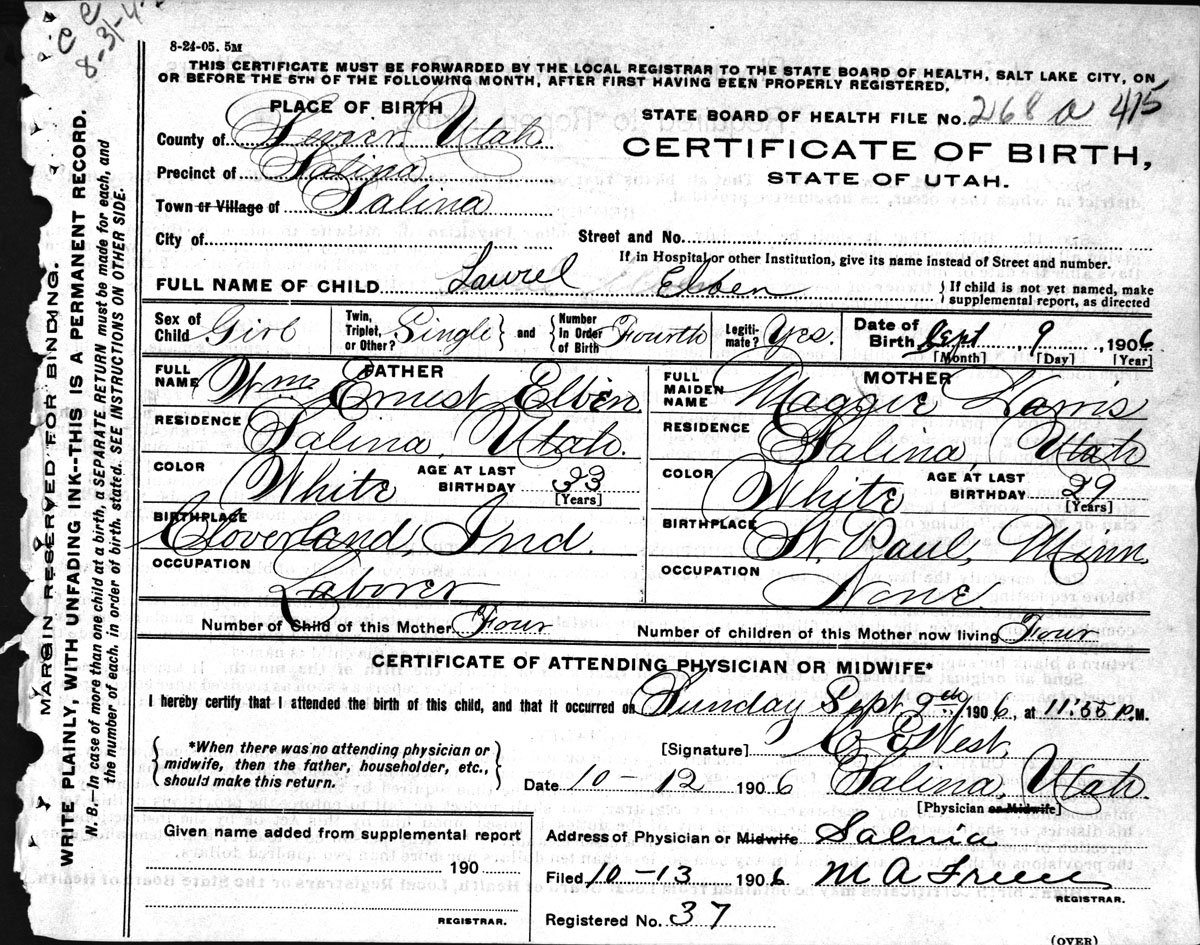 8-24-05. 5M
THIS CERTIFICATE MUST BE FORWARDED BY THE LOCAL REGISTRAR TO THE STATE BOARD OF HEALTH, SALT LAKE CITY, ON
OR BEFORE THE 5TH OF THE FOLLOWING MONTH, AFTER FIRST HAVING BEEN PROPERLY REGISTERED.
PLACE OF BIRTH
STATE BOARD OF HEALTH FILE No. 268 a 415
County of Sevier Utah
CERTIFICATE OF BIRTH,
Precinct of Salina
STATE OF UTAH.
Town or Village of Salina
City of
Street and No.
If in Hospital or other Institution, give its name instead of Street and number.
FULL NAME OF CHILD Laurel Elben
If child is not yet named, make
supplemental report, as directed
Sex of Child Girl
Twin, Triplet, or Other? Single and Number in Order of Birth Fourth
Legitimate? Yes.
Date of Birth Sept 9, 1906
[Month] [Day] [Year]
FATHER
FULL NAME Wm Ernest Elben
RESIDENCE Salina, Utah.
COLOR White
AGE AT LAST BIRTHDAY 33
[Years]
BIRTHPLACE Cloverland, Ind.
OCCUPATION Laborer
MOTHER
FULL MAIDEN NAME Maggie Harris
RESIDENCE Salina, Utah
COLOR White
AGE AT LAST BIRTHDAY 29
[Years]
BIRTHPLACE St. Paul, Minn.
OCCUPATION None.
Number of Child of this Mother Four
Number of children of this Mother now living Four
CERTIFICATE OF ATTENDING PHYSICIAN OR MIDWIFE*
I hereby certify that I attended the birth of this child, and that it occurred on Sunday Sept 9th 1906, at 11:55 P.M.
*When there was no attending physician or
midwife, then the father, householder, etc.,
should make this return.
[Signature] C. E. West,
Date 10-12 1906 Salina, Utah.
[Physician or Midwife]
Given name added from supplemental report
190
REGISTRAR.
Address of Physician or Midwife Salina
Filed 10-13 1906 M A
REGISTRAR.
Registered No. 37
(OVER)
MARGIN RESERVED FOR BINDING.
WRITE PLAINLY, WITH UNFADING INK--THIS IS A PERMANENT RECORD.
N. B.—In case of more than one child at a birth, a SEPARATE RETURN must be made for each, and
the number of each, in order of birth, stated. SEE INSTRUCTIONS ON OTHER SIDE.